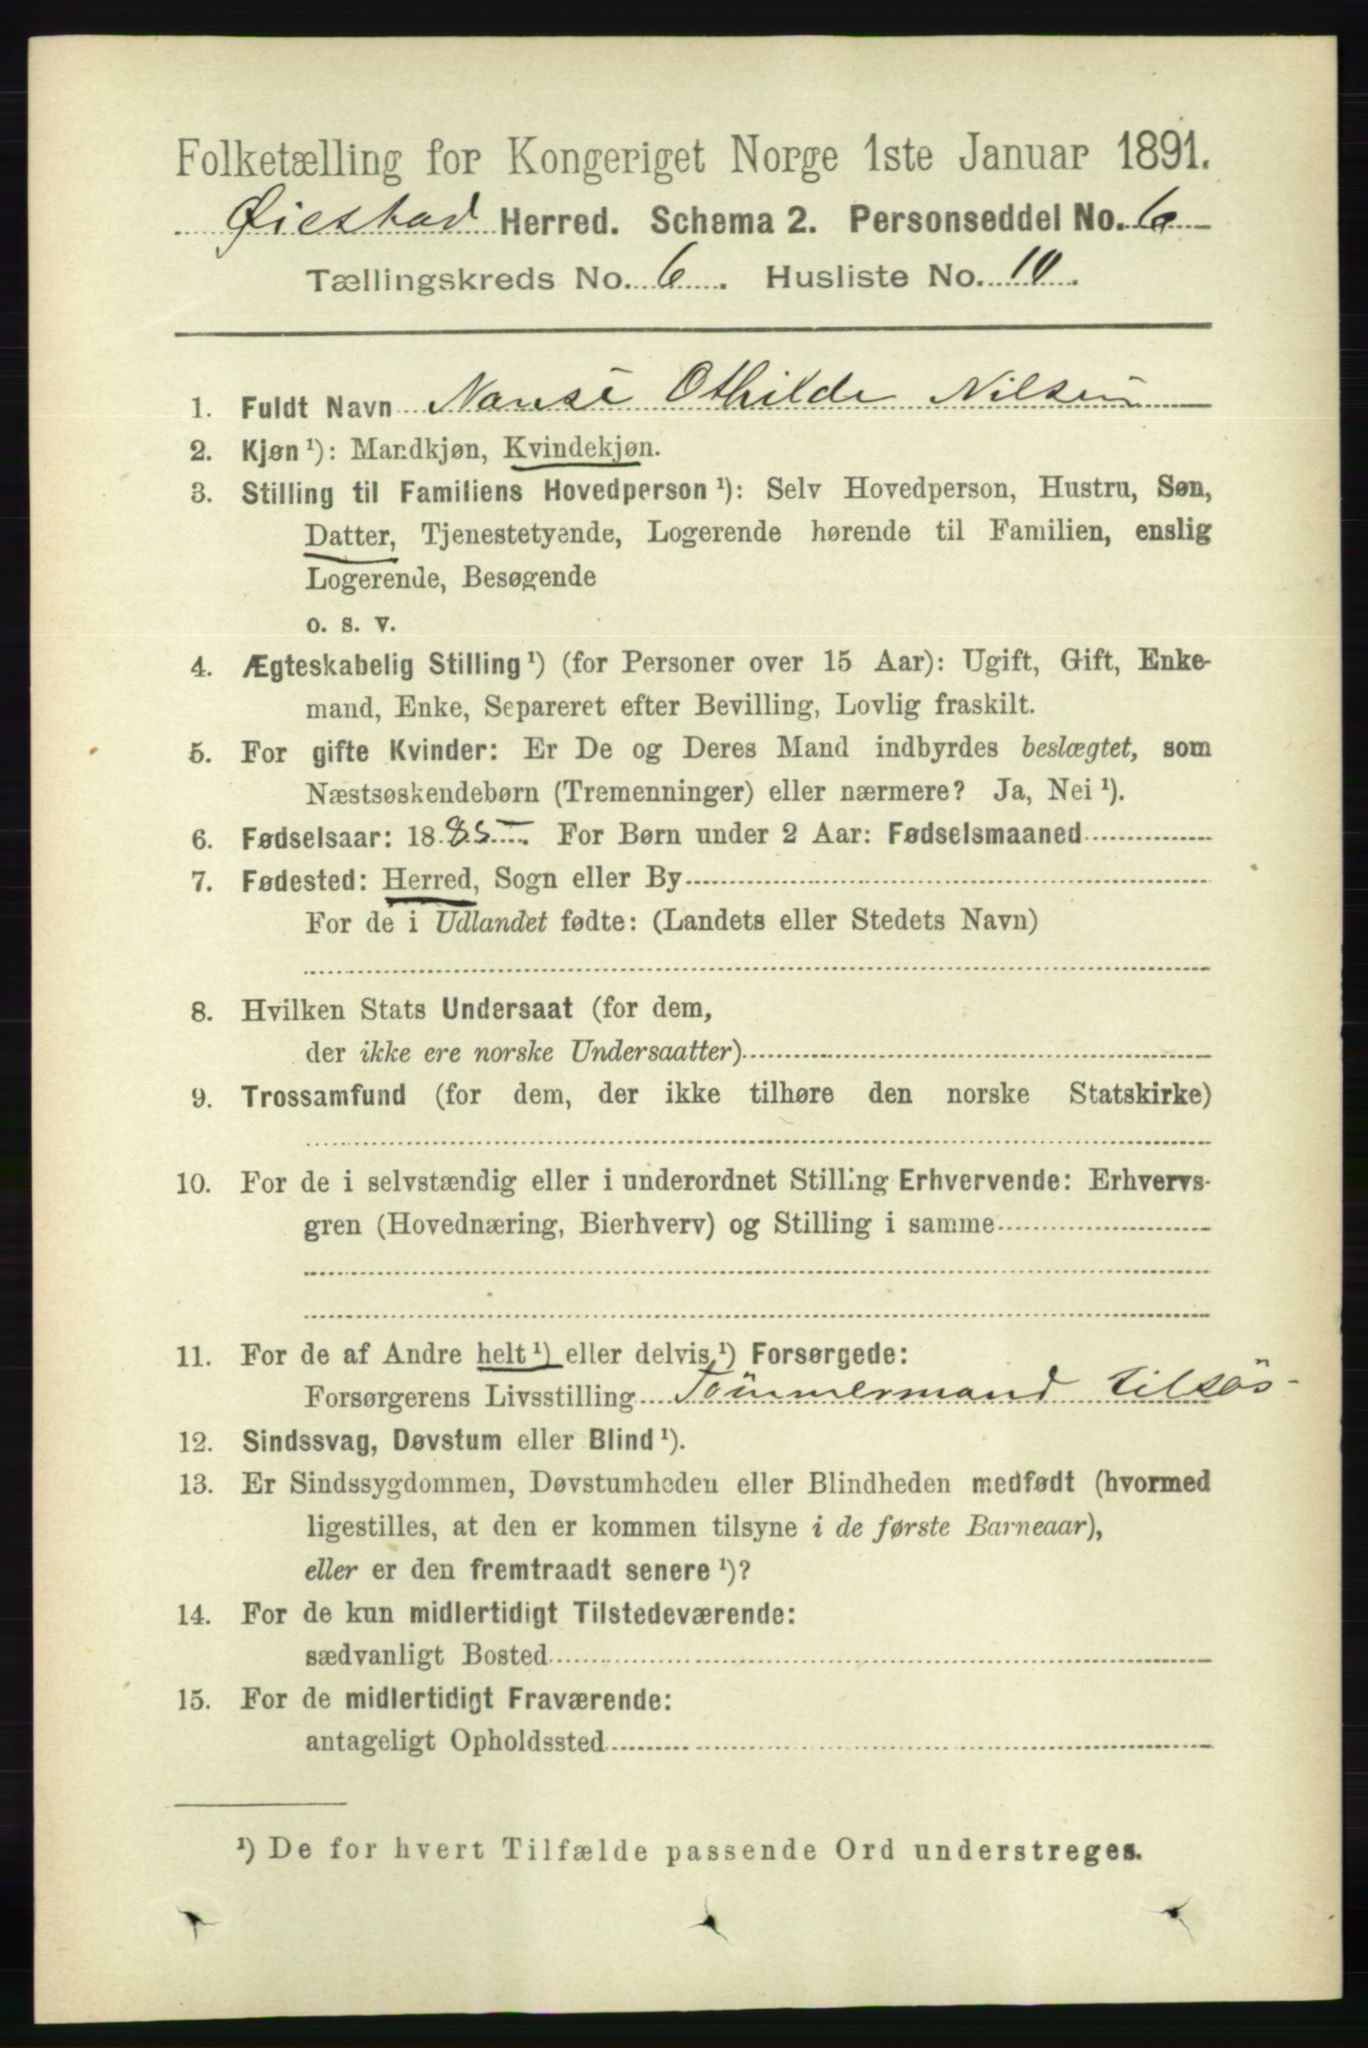 Folketælling for Kongeriget Norge 1ste Januar 1891.
Øiestad Herred. Schema 2. Personseddel No. 6
Tællingskreds No. 6. Husliste No. 10.
1. Fuldt Navn Nansi Othilde Nilsen
2. Kjøn ¹): Mandkjøn, Kvindekjøn.
3. Stilling til Familiens Hovedperson ¹): Selv Hovedperson, Hustru, Søn,
Datter, Tjenestetyende, Logerende hørende til Familien, enslig
Logerende, Besøgende
o. s. v.
4. Ægteskabelig Stilling ¹) (for Personer over 15 Aar): Ugift, Gift, Enke-
mand, Enke, Separeret efter Bevilling, Lovlig fraskilt.
5. For gifte Kvinder: Er De og Deres Mand indbyrdes beslægtet, som
Næstsøskendebørn (Tremenninger) eller nærmere? Ja, Nei ¹).
6. Fødselsaar: 1885. For Børn under 2 Aar: Fødselsmaaned
7. Fødested: Herred, Sogn eller By
For de i Udlandet fødte: (Landets eller Stedets Navn)
8. Hvilken Stats Undersaat (for dem,
der ikke ere norske Undersaatter)
9. Trossamfund (for dem, der ikke tilhøre den norske Statskirke)
10. For de i selvstændig eller i underordnet Stilling Erhvervende: Erhvervs-
gren (Hovednæring, Bierhverv) og Stilling i samme
11. For de af Andre helt ¹) eller delvis ¹) Forsørgede:
Forsørgerens Livsstilling Tömmermand tilsös
12. Sindssvag, Døvstum eller Blind ¹).
13. Er Sindssygdommen, Døvstumheden eller Blindheden medfødt (hvormed
ligestilles, at den er kommen tilsyne i de første Barneaar),
eller er den fremtraadt senere ¹)?
14. For de kun midlertidigt Tilstedeværende:
sædvanligt Bosted
15. For de midlertidigt Fraværende:
antageligt Opholdssted
¹) De for hvert Tilfælde passende Ord understreges.